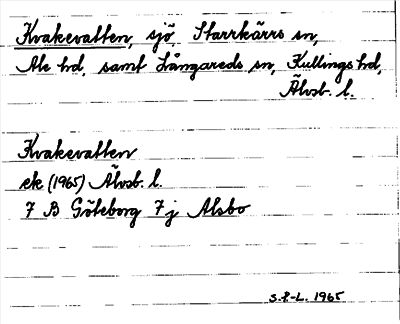 Kvakevatten, sjö, Starrkärrs sn,
Ale hd. samt Långareds sn, Kullings hd,
Älvsb. l.
Kvakevatten
ek (1965) Älvsb. l.
7 B Göteborg 7 j Alsbo
S.P-L. 1965